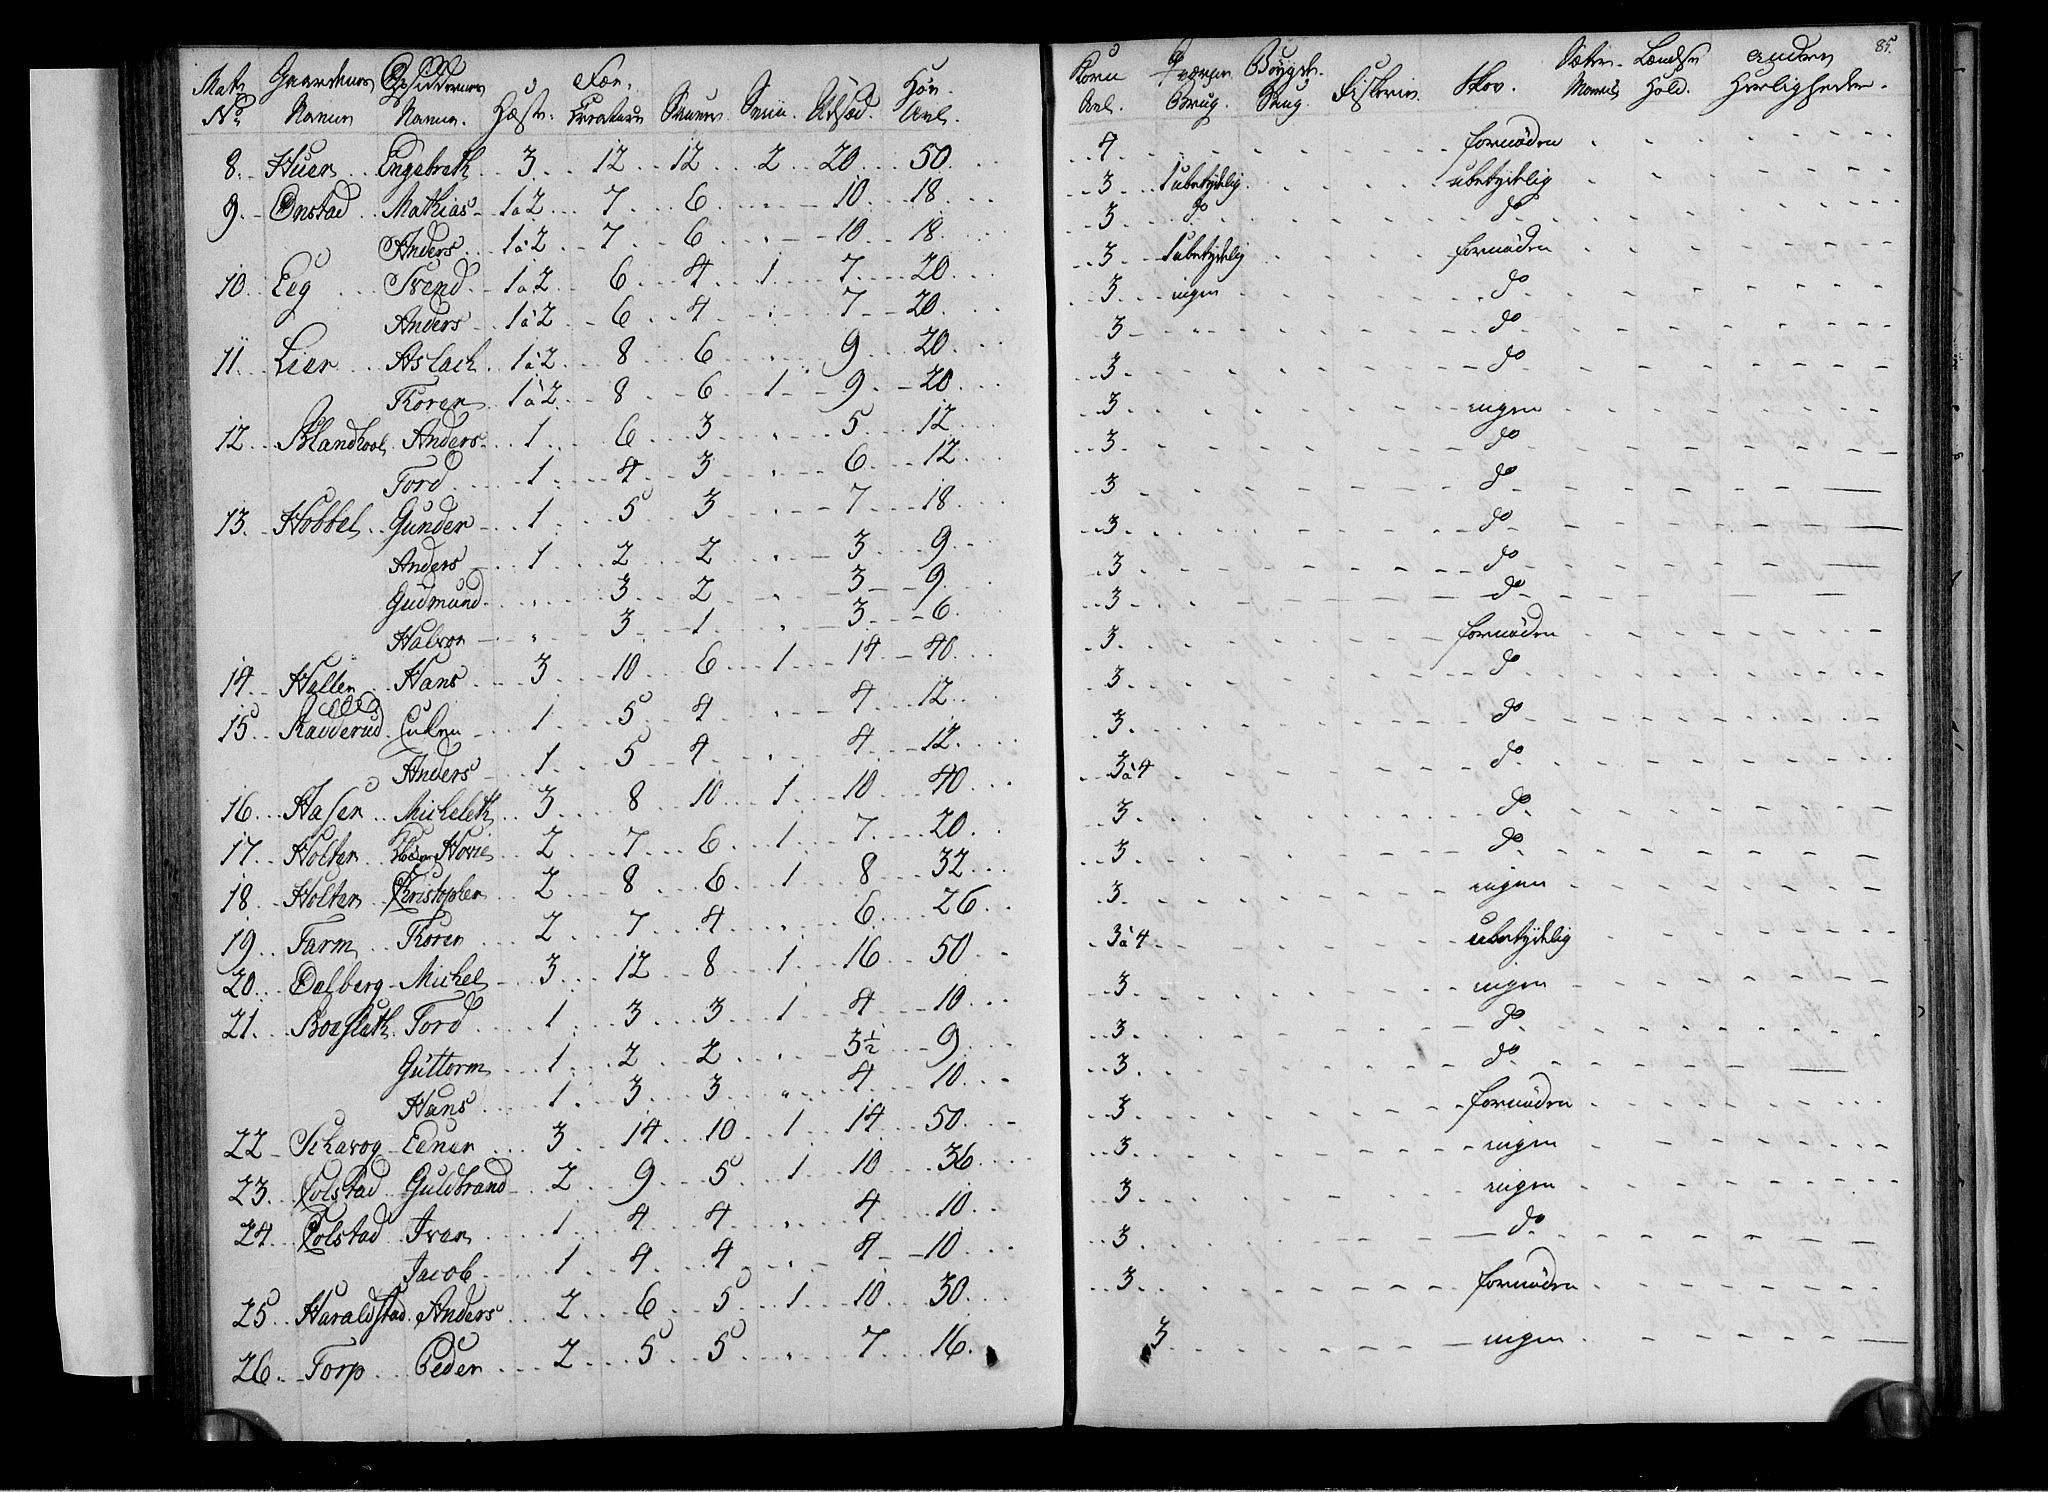 85.
Matr No Gaardenes Navne Opsiddernes Navne. Hæste. Fæe Creature Sauer Sviin. Udsæd. Høe Avl. Korn Avl. Qværne Brug. Bøygde Saug. Fiskerie. Skov. Sæter Hold. andre Herligheder.
8. Huer Engebreth 3 12 12 2 20 50 4 fornøden
9. Onstad Mathias 1 a 2 7 6 " 10 18 3 1 ubetydelig ubetydelig
Anders 1 a 2 7 6 " 10 18 3 do do
10 Eeg Svend 1 a 2 6 4 1 7 20 3 1 ubetydelig fornøden
Anders 1 a 2 6 4 " 7 20 3 ingen do
11. Lier Aslach 1 a 2 8 6 " 9 20 3 do
Thoren 1 a 2 8 6 1 9 20 3 do
12 Anders 1 6 3 " 5 12 3 ingen
Tord 1 4 3 " 6 12 3 do
13. Hobbel Gunder 1 5 3 " 7 18 3 do
Anders 1 2 2 " 3 9 3 do
Gudmund " 3 2 " 3 9 3 do
Halvor " 3 1 " 3 6 3 do
14 Haller Hans 3 10 6 1 14 40 3 fornøden
15 Radderud 1 5 4 " 4 12 3 do
Anders 1 5 4 " 4 12 3 do
16 Haser Micheleth 3 8 10 1 10 40 3 a 4 do
17 Holter Hovie 2 7 6 1 7 20 3 do
18 Holter Christopher 2 8 6 1 8 32 3 do
19 Farm Thoren 2 7 4 " 6 26 3 ingen
20 Dalberg Michel 3 12 8 1 16 50 3 a 4 ubetydelig
21. Tord 1 3 3 1 4 10 3 ingen
Guttorm 1 2 2 " 3½ 9 3 do
Hans 1 3 3 " 4 10 3 do
22 Scharog Eener 3 14 10 1 14 50 3 fornøden
23. Colstad Guldbrand 2 9 5 1 10 36 3 ingen
24. Colstad Iver 1 4 4 " 4 10 3 ingen
Jacob 1 4 4 " 4 10 3 do
25 Haraldstad Anders 2 6 5 1 10 30 3 fornøden
26 Torp Peder 2 5 5 " 7 16 3 ingen